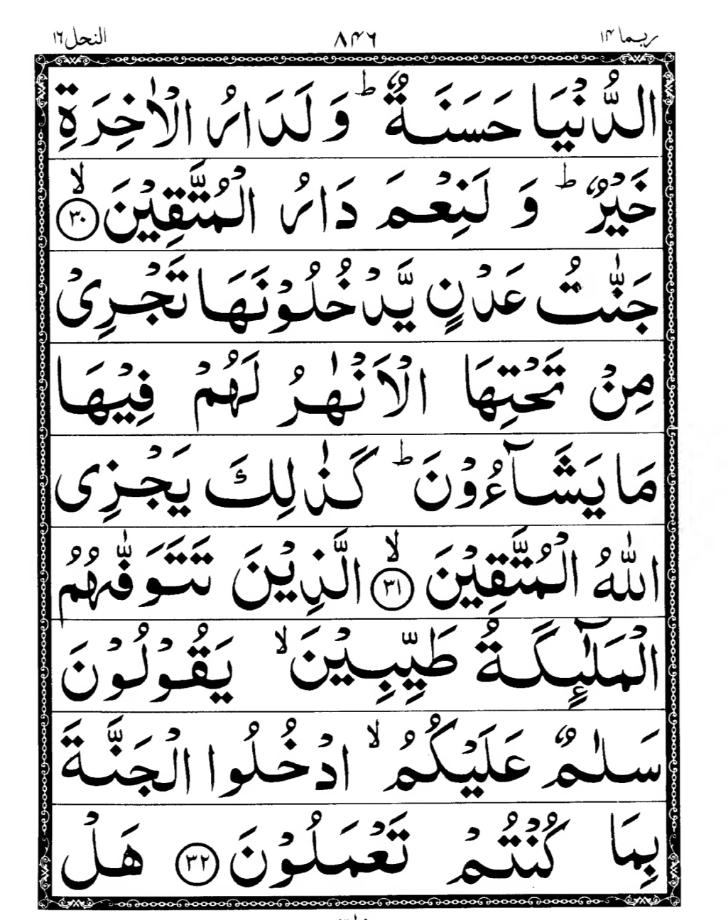 ربما ١٤ ٨٤٦ النحل ١٦
الدُّنْيَا حَسَنَةٌ ؕ وَ لَدَارُ الْاٰخِرَةِ
خَيْرٌ ؕ وَ لَنِعْمَ دَارُ الْمُتَّقِيْنَ ۙ ﴿۳۰﴾
جَنّٰتُ عَدْنٍ يَّدْخُلُوْنَهَا تَجْرِيْ
مِنْ تَحْتِهَا الْاَنْهٰرُ لَهُمْ فِيْهَا
مَا يَشَآءُوْنَ ؕ كَذٰلِكَ يَجْزِى
اللّٰهُ الْمُتَّقِيْنَ ۙ ﴿۳۱﴾ الَّذِيْنَ تَتَوَفّٰىهُمُ
الْمَلٰٓئِكَةُ طَيِّبِيْنَ ۙ يَقُوْلُوْنَ
سَلٰمٌ عَلَيْكُمُ ۙ ادْخُلُوا الْجَنَّةَ
بِمَا كُنْتُمْ تَعْمَلُوْنَ ﴿۳۲﴾ هَلْ